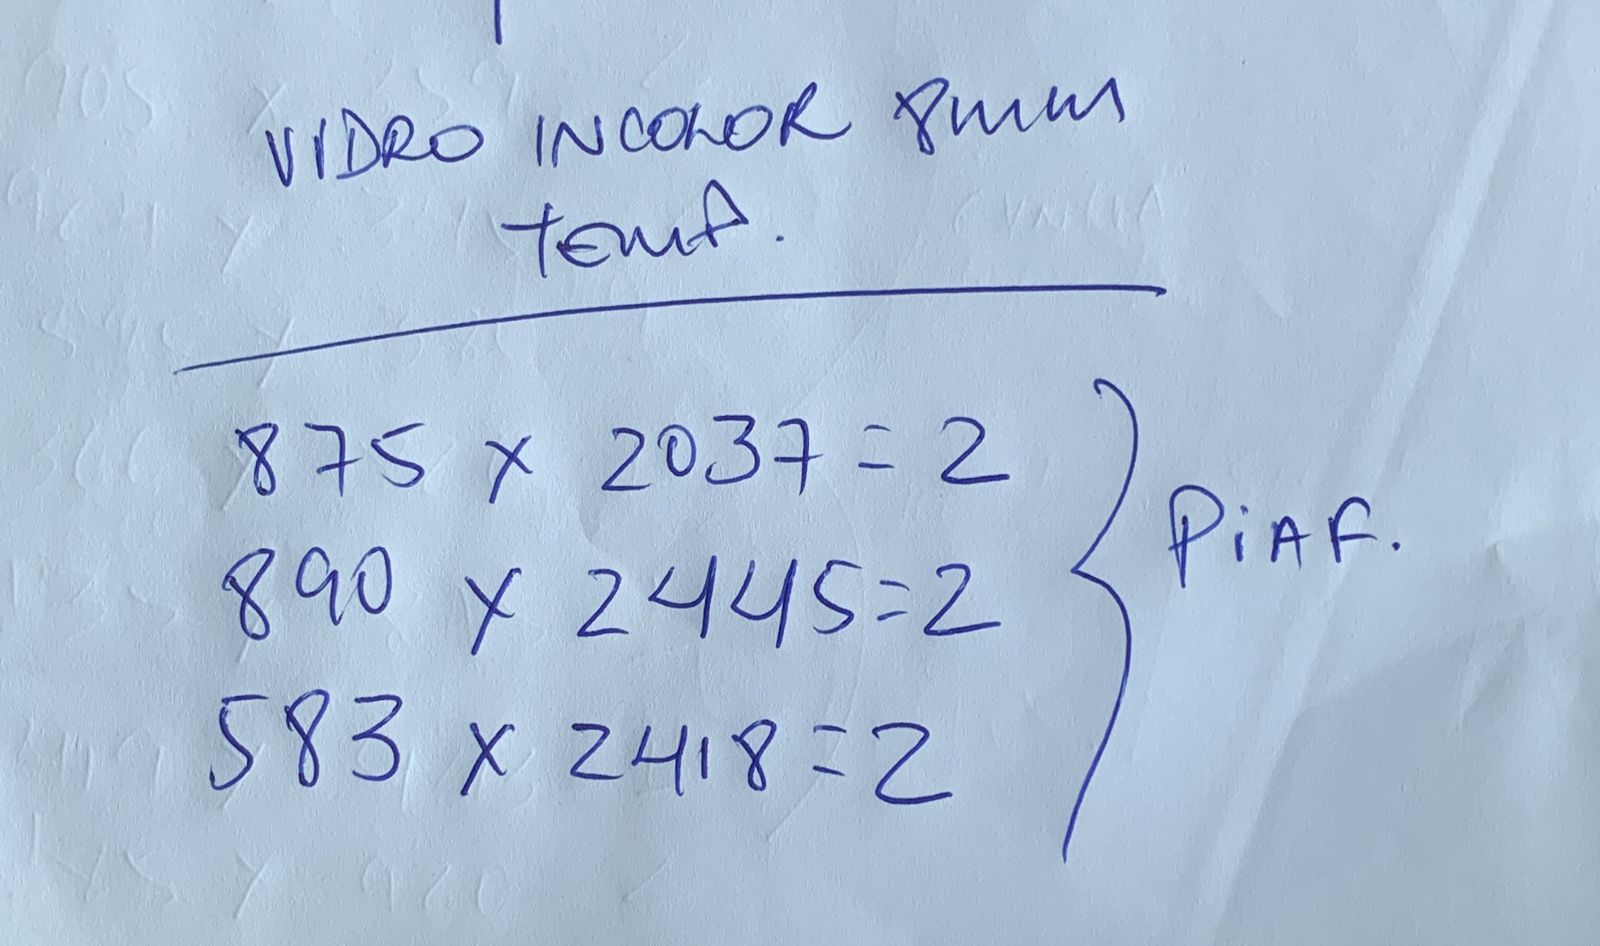 VIDRO INCOLOR 8mm
temp.
875 x 2037 = 2
890 x 2445 = 2
583 x 2418 = 2
PiAF.